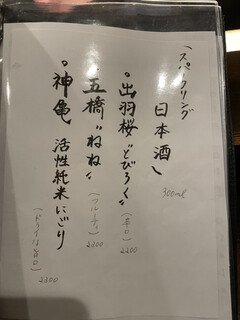 （スパークリング
日本酒）
300ml
°出羽桜"とびろく"
（辛口）
2200
°五橋"ねね"
（フルーティ）
2200
°神亀 活性純米にごり
（ドライな旨口）
2800